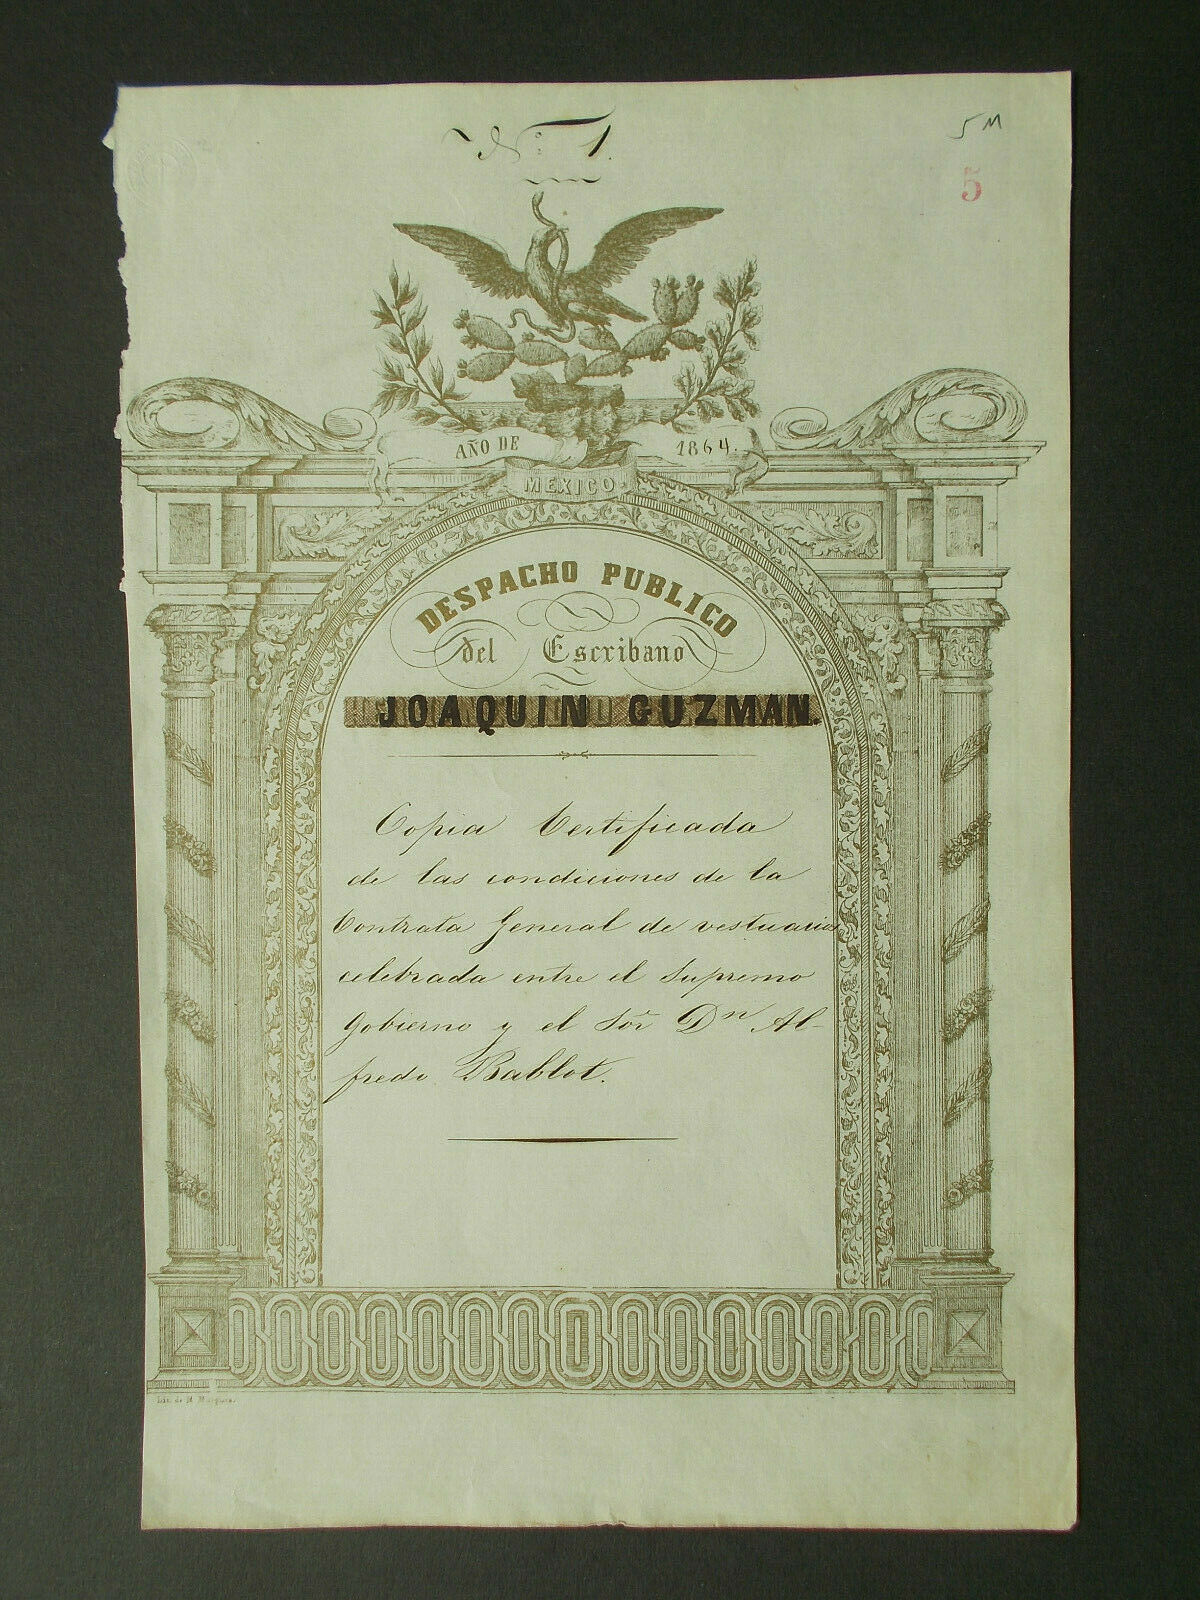 N.º 1.
5 M
5
AÑO DE 1864.
MEXICO
DESPACHO PUBLICO
del Escribano
JOAQUIN GUZMAN.
Copia Certificada
de las condiciones de la
Contrata General de vestuario
celebrada entre el Supremo
Gobierno y el Sor Dn Al-
fredo Bablot.
Lit. de